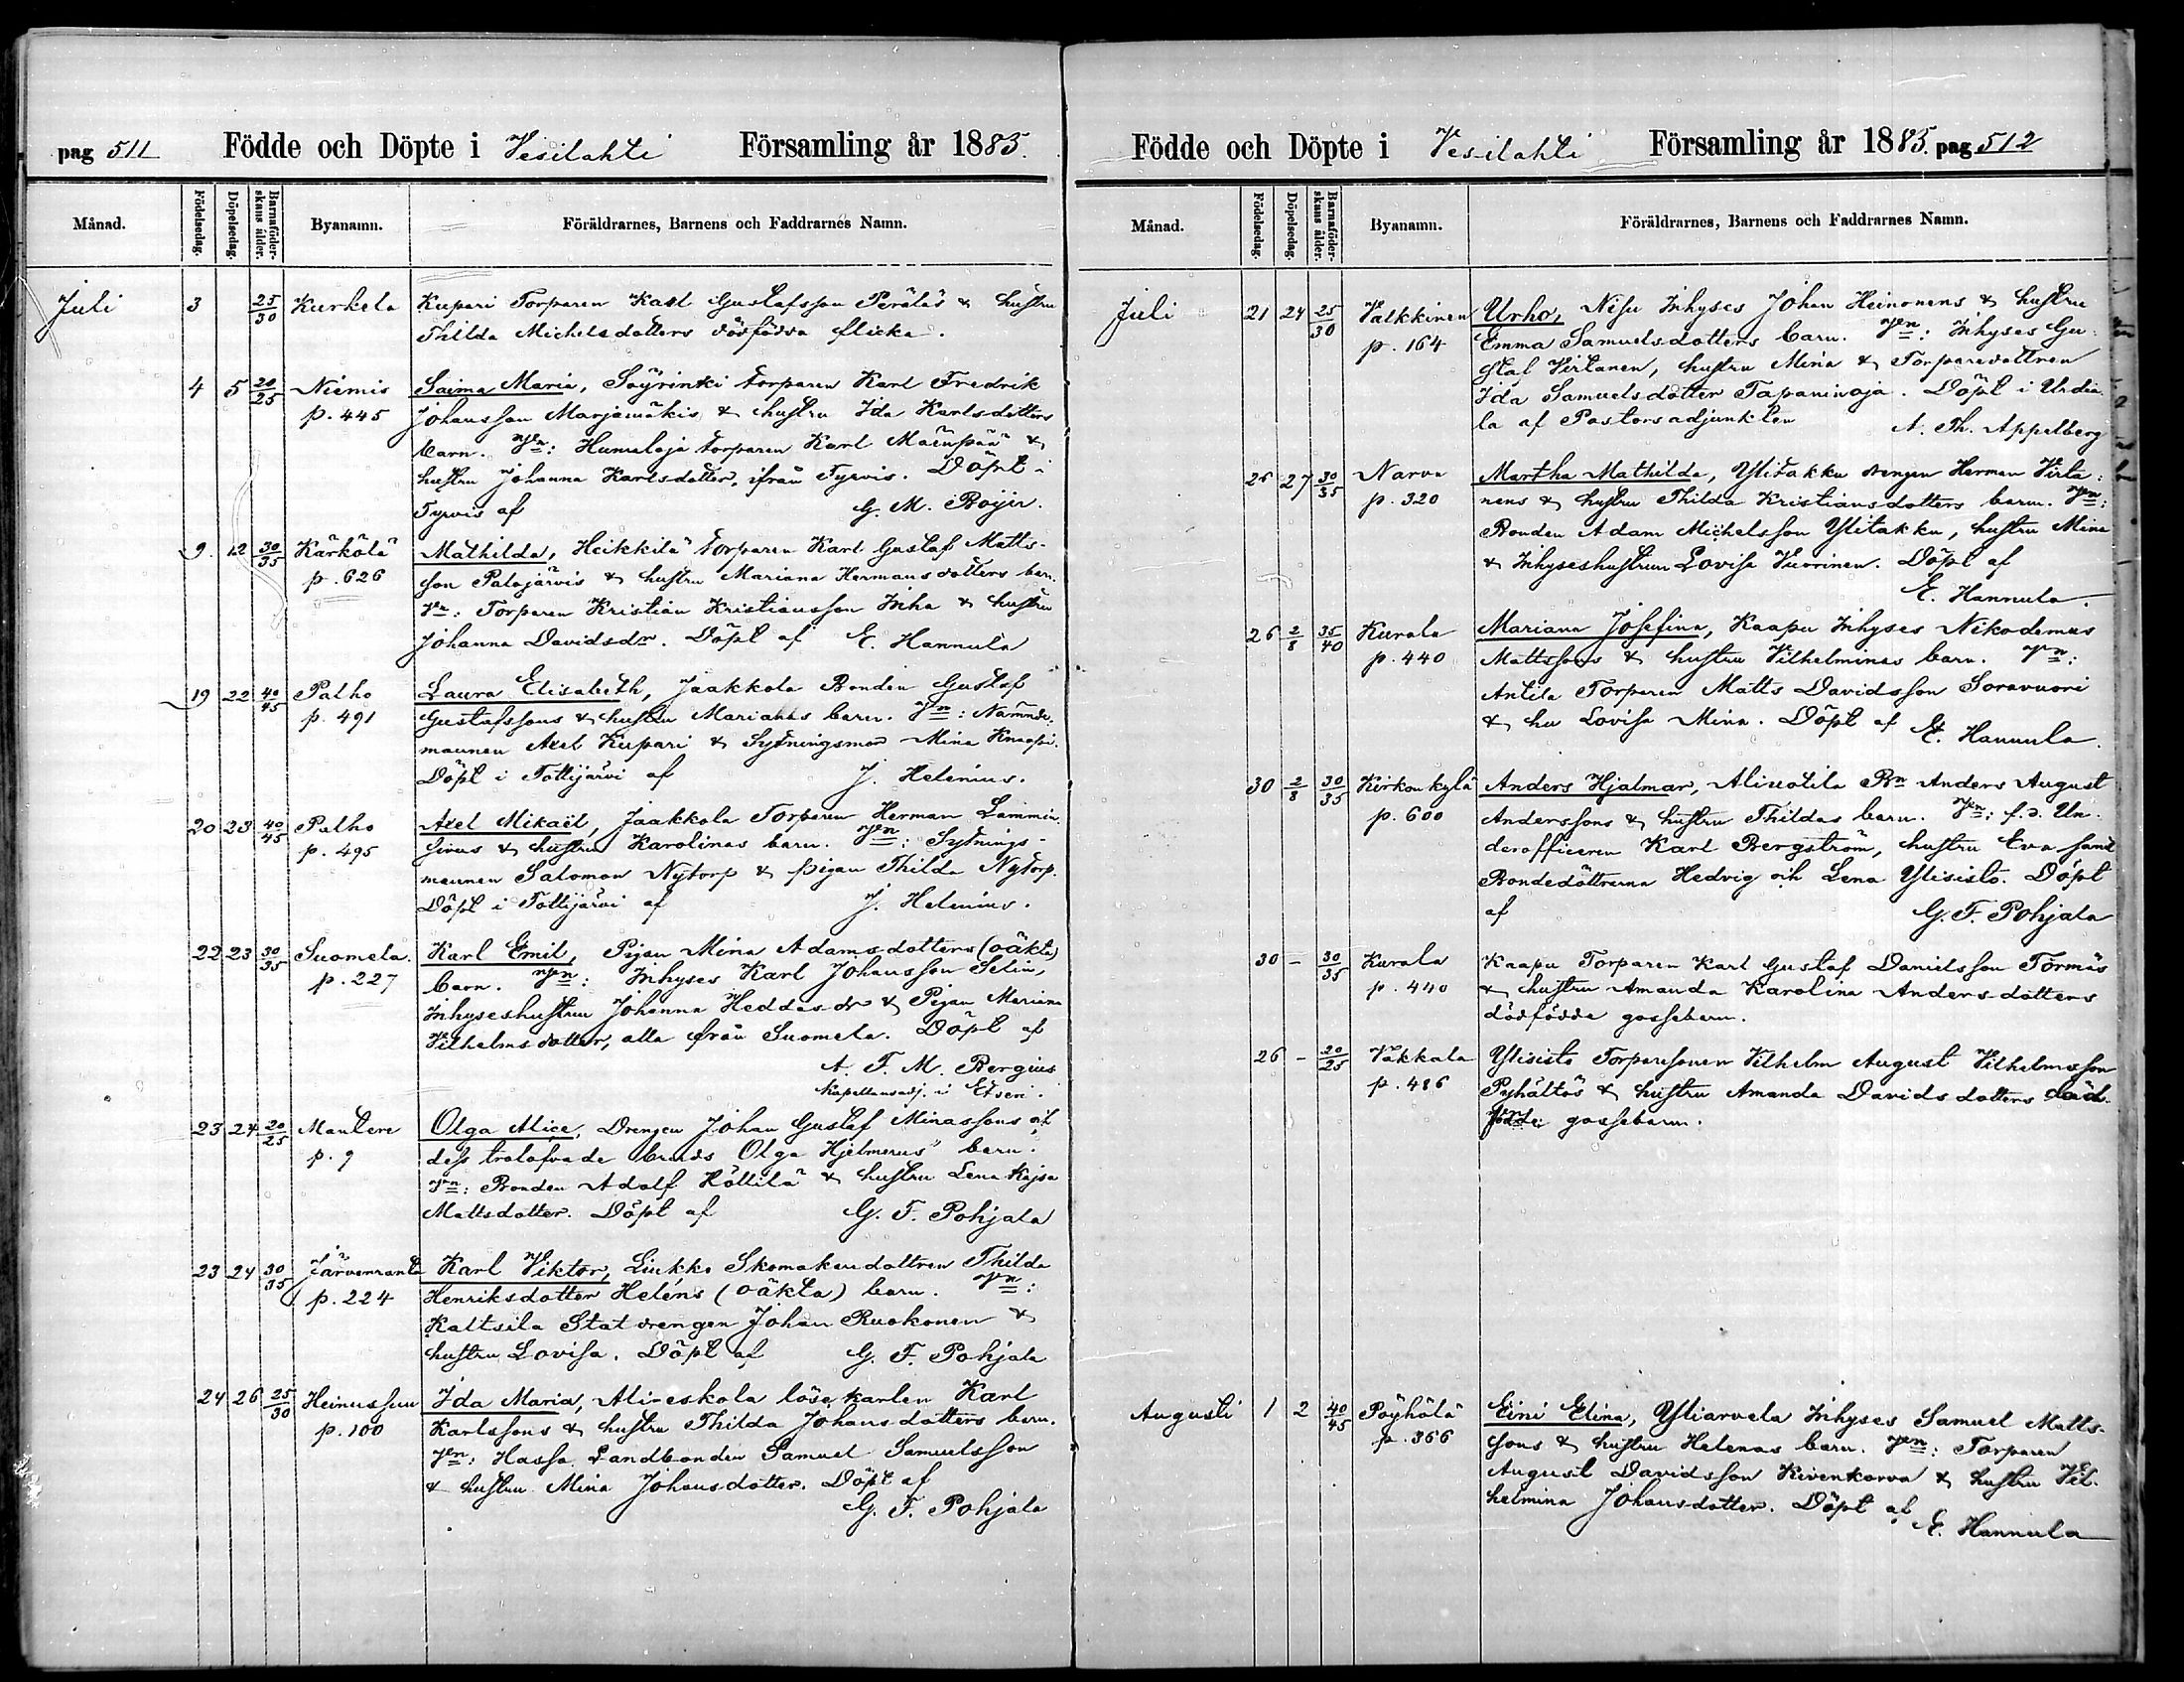 pag 511 Födde och Döpte i Vesilahti Församling år 1885.
Månad. Födelsedag. Döpelsedag. Barnaföderskans ålder. Byanamn. Föräldrarnes, Barnens och Faddrarnes Namn.
Juli 3 25/30 Kurkela Kupari Torparen Karl Gustafsson Peräläs & hustru
Thilda Michelsdotters dödfödda flicka.
4 5 20/25 Niemis Saima Maria, Söyrinki torparen Karl Fredrik
p. 445 Johansson Marjamäkis & hustru Ida Karlsdotters
barn. Vn: Humaloja torparen Karl Mäenpää &
hustru Johanna Karlsdotter, ifrån Tyrvis. Döpt i
Tyrvis af G. M. Boijer.
9. 12 30/35 Kärkölä Mathilda, Heikkilä torparen Karl Gustaf Matts-
p. 626 son Palojärvis & hustru Mariana Hermansdotters barn.
Vn: Torparen Kristian Kristiansson Inha & hustru
Johanna Davidsdr. Döpt af E. Hannula
19 22 40/45 Palho Laura Elisabeth, Jaakkola Bonden Gustaf
p. 491 Gustafssons & hustru Marianas barn. Vn: Nämnde-
mannen Axel Kupari & Sytningsmor Mina Knaapi.
Döpt i Tottijärvi af J. Helenius.
20 23 40/45 Palho Axel Mikaël, Jaakkola Torparen Herman Lammin-
p. 495 sivus & hustru Karolinas barn. Vn: Sytnings-
mannen Salomon Nytorp & pigan Thilda Nytorp.
Döpt i Tottijärvi af J. Helenius.
22 23 30/35 Suomela. Karl Emil, Pigan Mina Adamsdotters (oäkta)
p. 227 barn. Vn: Inhyses Karl Johansson Selin,
Inhyseshustrun Johanna Heddasdr & Pigan Mariana
Vilhelmsdotter, alla från Suomela. Döpt af
A. F. M. Bergius
Kapellansadj. i Etseri.
23 24 20/25 Mantere Olga Alice, Drengen Johan Gustaf Minassons och
p. 9 dess trolofvade bruds Olga Hjelmerus barn.
Vn: Bonden Adolf Höllilä & hustru Lena Kajsa
Mattsdotter. Döpt af G. F. Pohjala
23 24 30/35 Järvenranta Karl Viktor, Liukko Skomakaredottren Thilda
p. 224 Henriksdotter Heléns (oäkta) barn. Vn:
Kaltsila Statdrengen Johan Ruokonen &
hustru Lovisa. Döpt af G. F. Pohjala
24 26 25/30 Heinussuu Ida Maria, Ali-eskola lösekarlen Karl
p. 100 Karlssons & hustru Thilda Johansdotters barn.
Vn: Hassa Landbonden Samuel Samuelsson
& hustru Mina Johansdotter. Döpt af
G. F. Pohjala
Födde och Döpte i Vesilahti Församling år 1885. pag 512
Månad. Födelsedag. Döpelsedag. Barnaföderskans ålder. Byanamn. Föräldrarnes, Barnens och Faddrarnes Namn.
Juli 21 24 25/30 Valkkinen Urho, Nisu Inhyses Johan Heinonens & hustru
p. 164 Emma Samuelsdotters barn. Vn: Inhyses Gu-
staf Virtanen, hustru Mina & Torparedottren
Ida Samuelsdotter Tapaninoja. Döpt i Urdia-
la af Pastorsadjunkten A. Th. Appelberg
25 27 30/35 Narva Martha Mathilda, Ylitakku drengen Herman Virta-
p. 320 nens & hustru Thilda Kristiansdotters barn. Vn:
Bonden Adam Michelsson Ylitakku, hustru Mina
& Inhyseshustrun Lovisa Vuorinen. Döpt af
E. Hannula.
26 2/8 35/40 Kurala Mariana Josefina, Kaapu Inhyses Nikodemus
p. 440 Mattssons & hustru Vilhelminas barn. Vn:
Antila Torparen Matts Davidsson Soravuori
& hu Lovisa Mina. Döpt af E. Hannula.
30 2/8 30/35 Kirkonkylä Anders Hjalmar, Aliuotila Bn Anders August
p. 600 Anderssons & hustru Thildas barn. Vn: f.d. Un-
derofficeren Karl Bergström, hustru Eva samt
Bondedöttrarna Hedvig och Lena Ylisisto. Döpt
af G. F. Pohjala
30 - 30/35 Kurala Kaapu Torparen Karl Gustaf Danielsson Törmäs
p. 440 & hustru Amanda Karolina Andersdotters
dödfödda gossebarn.
26 - 20/25 Vakkala Ylisisto Torparesonen Vilhelm August Vilhelmsson
p. 486 Pyhältös & hustru Amanda Davidsdotters död-
födde gossebarn.
Augusti 1 2 40/45 Pöyhölä Eini Elina, Yliarvela Inhyses Samuel Matts-
p. 366 sons & hustru Helenas barn. Vn: Torparen
August Davidsson Kivenkorva & hustru Vil-
helmina Johansdotter. Döpt af E. Hannula